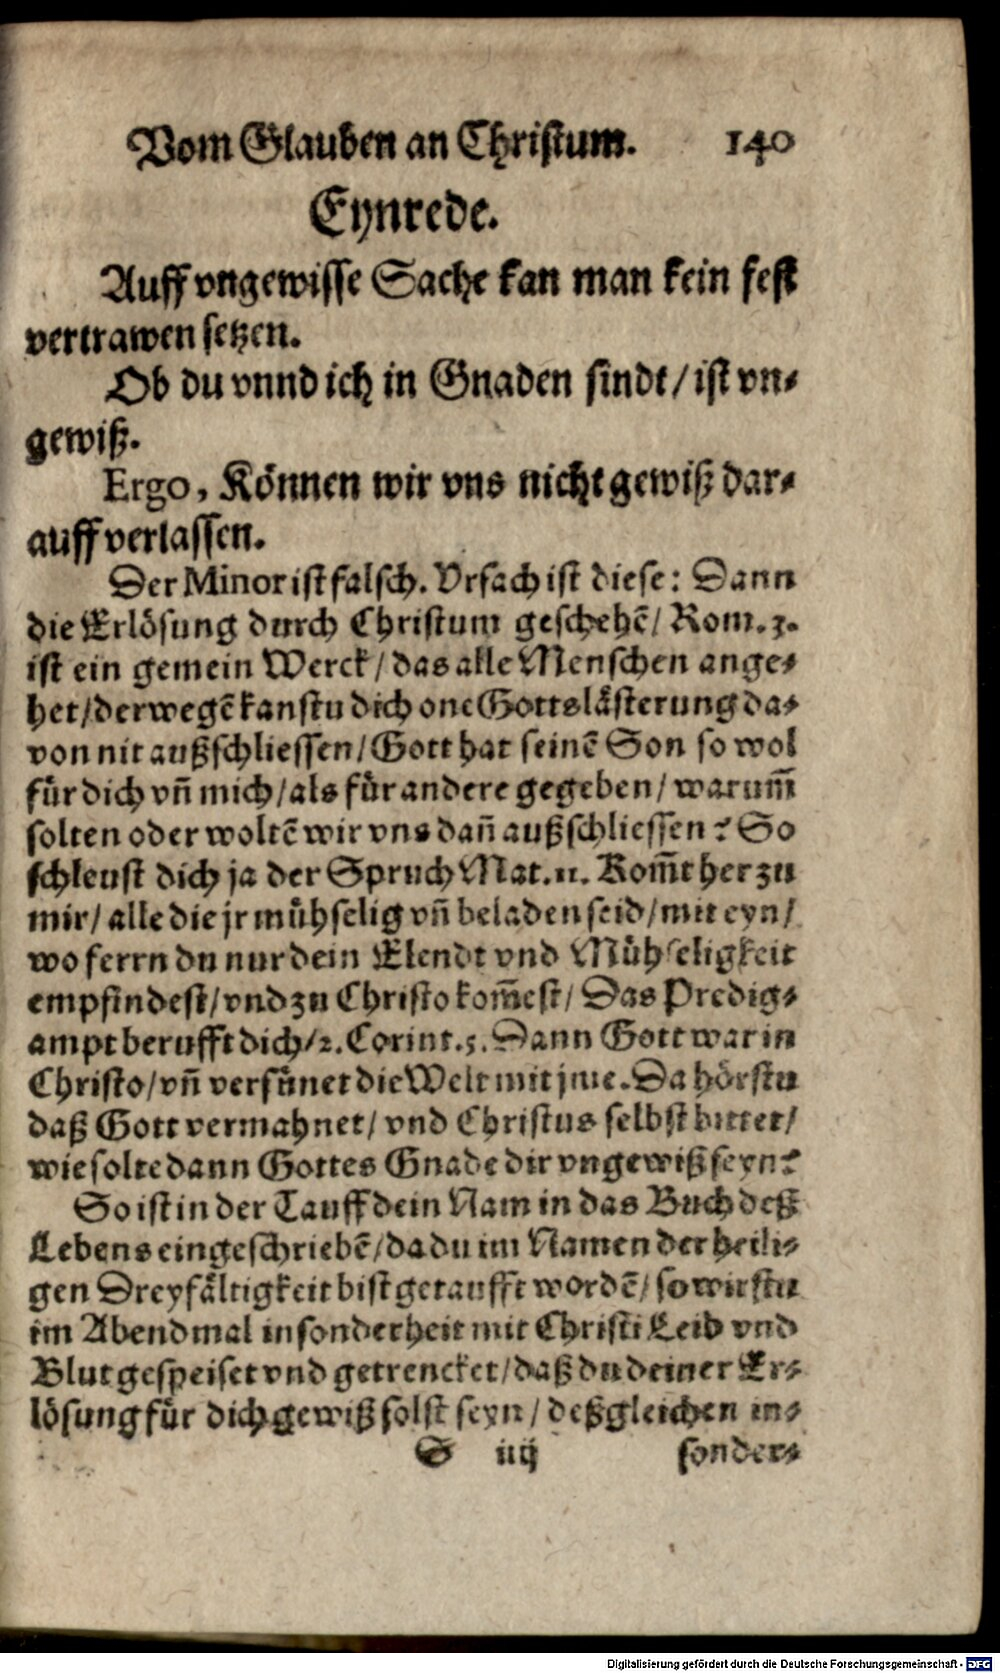 Vom Glauben an Christum. 140
Eynrede.
Auff vngewisse Sache kan man kein fest
vertrawen setzen.
Ob du vnnd ich in Gnaden sindt / ist vn-
gewiß.
Ergo, Können wir vns nicht gewiß dar-
auff verlassen.
Der Minor ist falsch. Vrsach ist diese: Dann
die Erlösung durch Christum geschehẽ / Rom. 3.
ist ein gemein Werck / das alle Menschen ange-
het / derwegẽ kanstu dich one Gottslästerung da-
von nit außschliessen / Gott hat seinẽ Son so wol
für dich vñ mich / als für andere gegeben / warum̃
solten oder woltẽ wir vns dañ außschliessen? So
schleust dich ja der Spruch Mat. 11. Kom̃t her zu
mir / alle die jr mühselig vñ beladen seid / mit eyn /
wo ferrn du nur dein Elendt vnd Mühseligkeit
empfindest / vnd zu Christo kom̃est / Das Predig-
ampt berufft dich / 2. Corint. 5. Dann Gott war in
Christo / vñ versünet die Welt mit jme. Da hörstu
daß Gott vermahnet / vnd Christus selbst bittet /
wie solte dann Gottes Gnade dir vngewiß seyn?
So ist in der Tauff dein Nam in das Buch deß
Lebens eingeschriebẽ / da du im Namen der heili-
gen Dreyfältigkeit bist getaufft wordẽ / so wirstu
im Abendmal insonderheit mit Christi Leib vnd
Blut gespeiset vnd getrencket / daß du deiner Er-
lösung für dich gewiß solst seyn / deßgleichen in-
S iiij sonder-
Digitalisierung gefördert durch die Deutsche Forschungsgemeinschaft - DFG